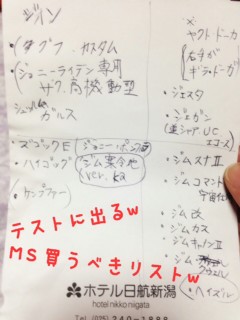 ジン
グフ カスタム
ジョニーライデン専用
ザク 高機動型
ガルス
ズゴックE
ハイゴッグ
ジム寒冷地
ver. ka
(ケンプファー)
ヤクト・ドーガ
ギラ・ドーガ
ジェスタ
ジェガン
エコーズ
ジムスナⅡ
ジムコマンド
宇宙
ジム改
ジムカス
ジムキャノンⅡ
ジム
ヘイズル
テストに出るw
MS買うべきリストw
ホテル日航新潟
hotel nikko niigata